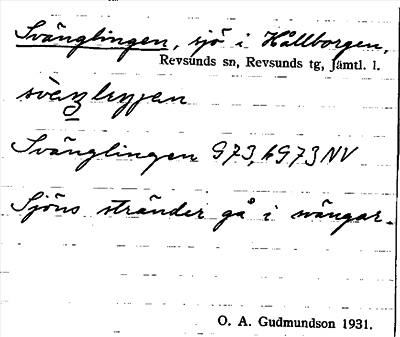 Svänglingen, sjö i Hållborgen,
Revsunds sn, Revsunds tg, Jämtl. l.
Svänglingen 973, k 973 NV
Sjöns stränder gå i svängar.
O. A. Gudmundson 1931.